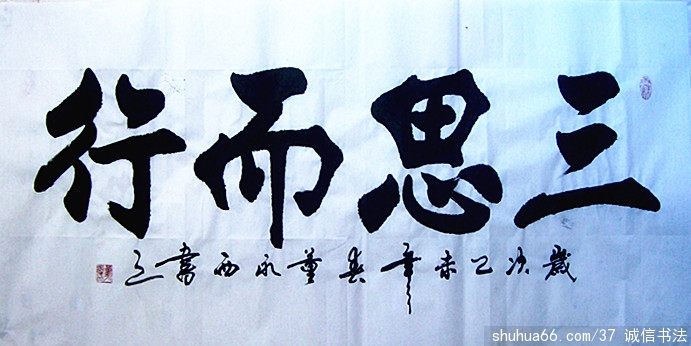 三思而行
歲次乙未年春董永西書之
shuhua66.com/37 诚信书法